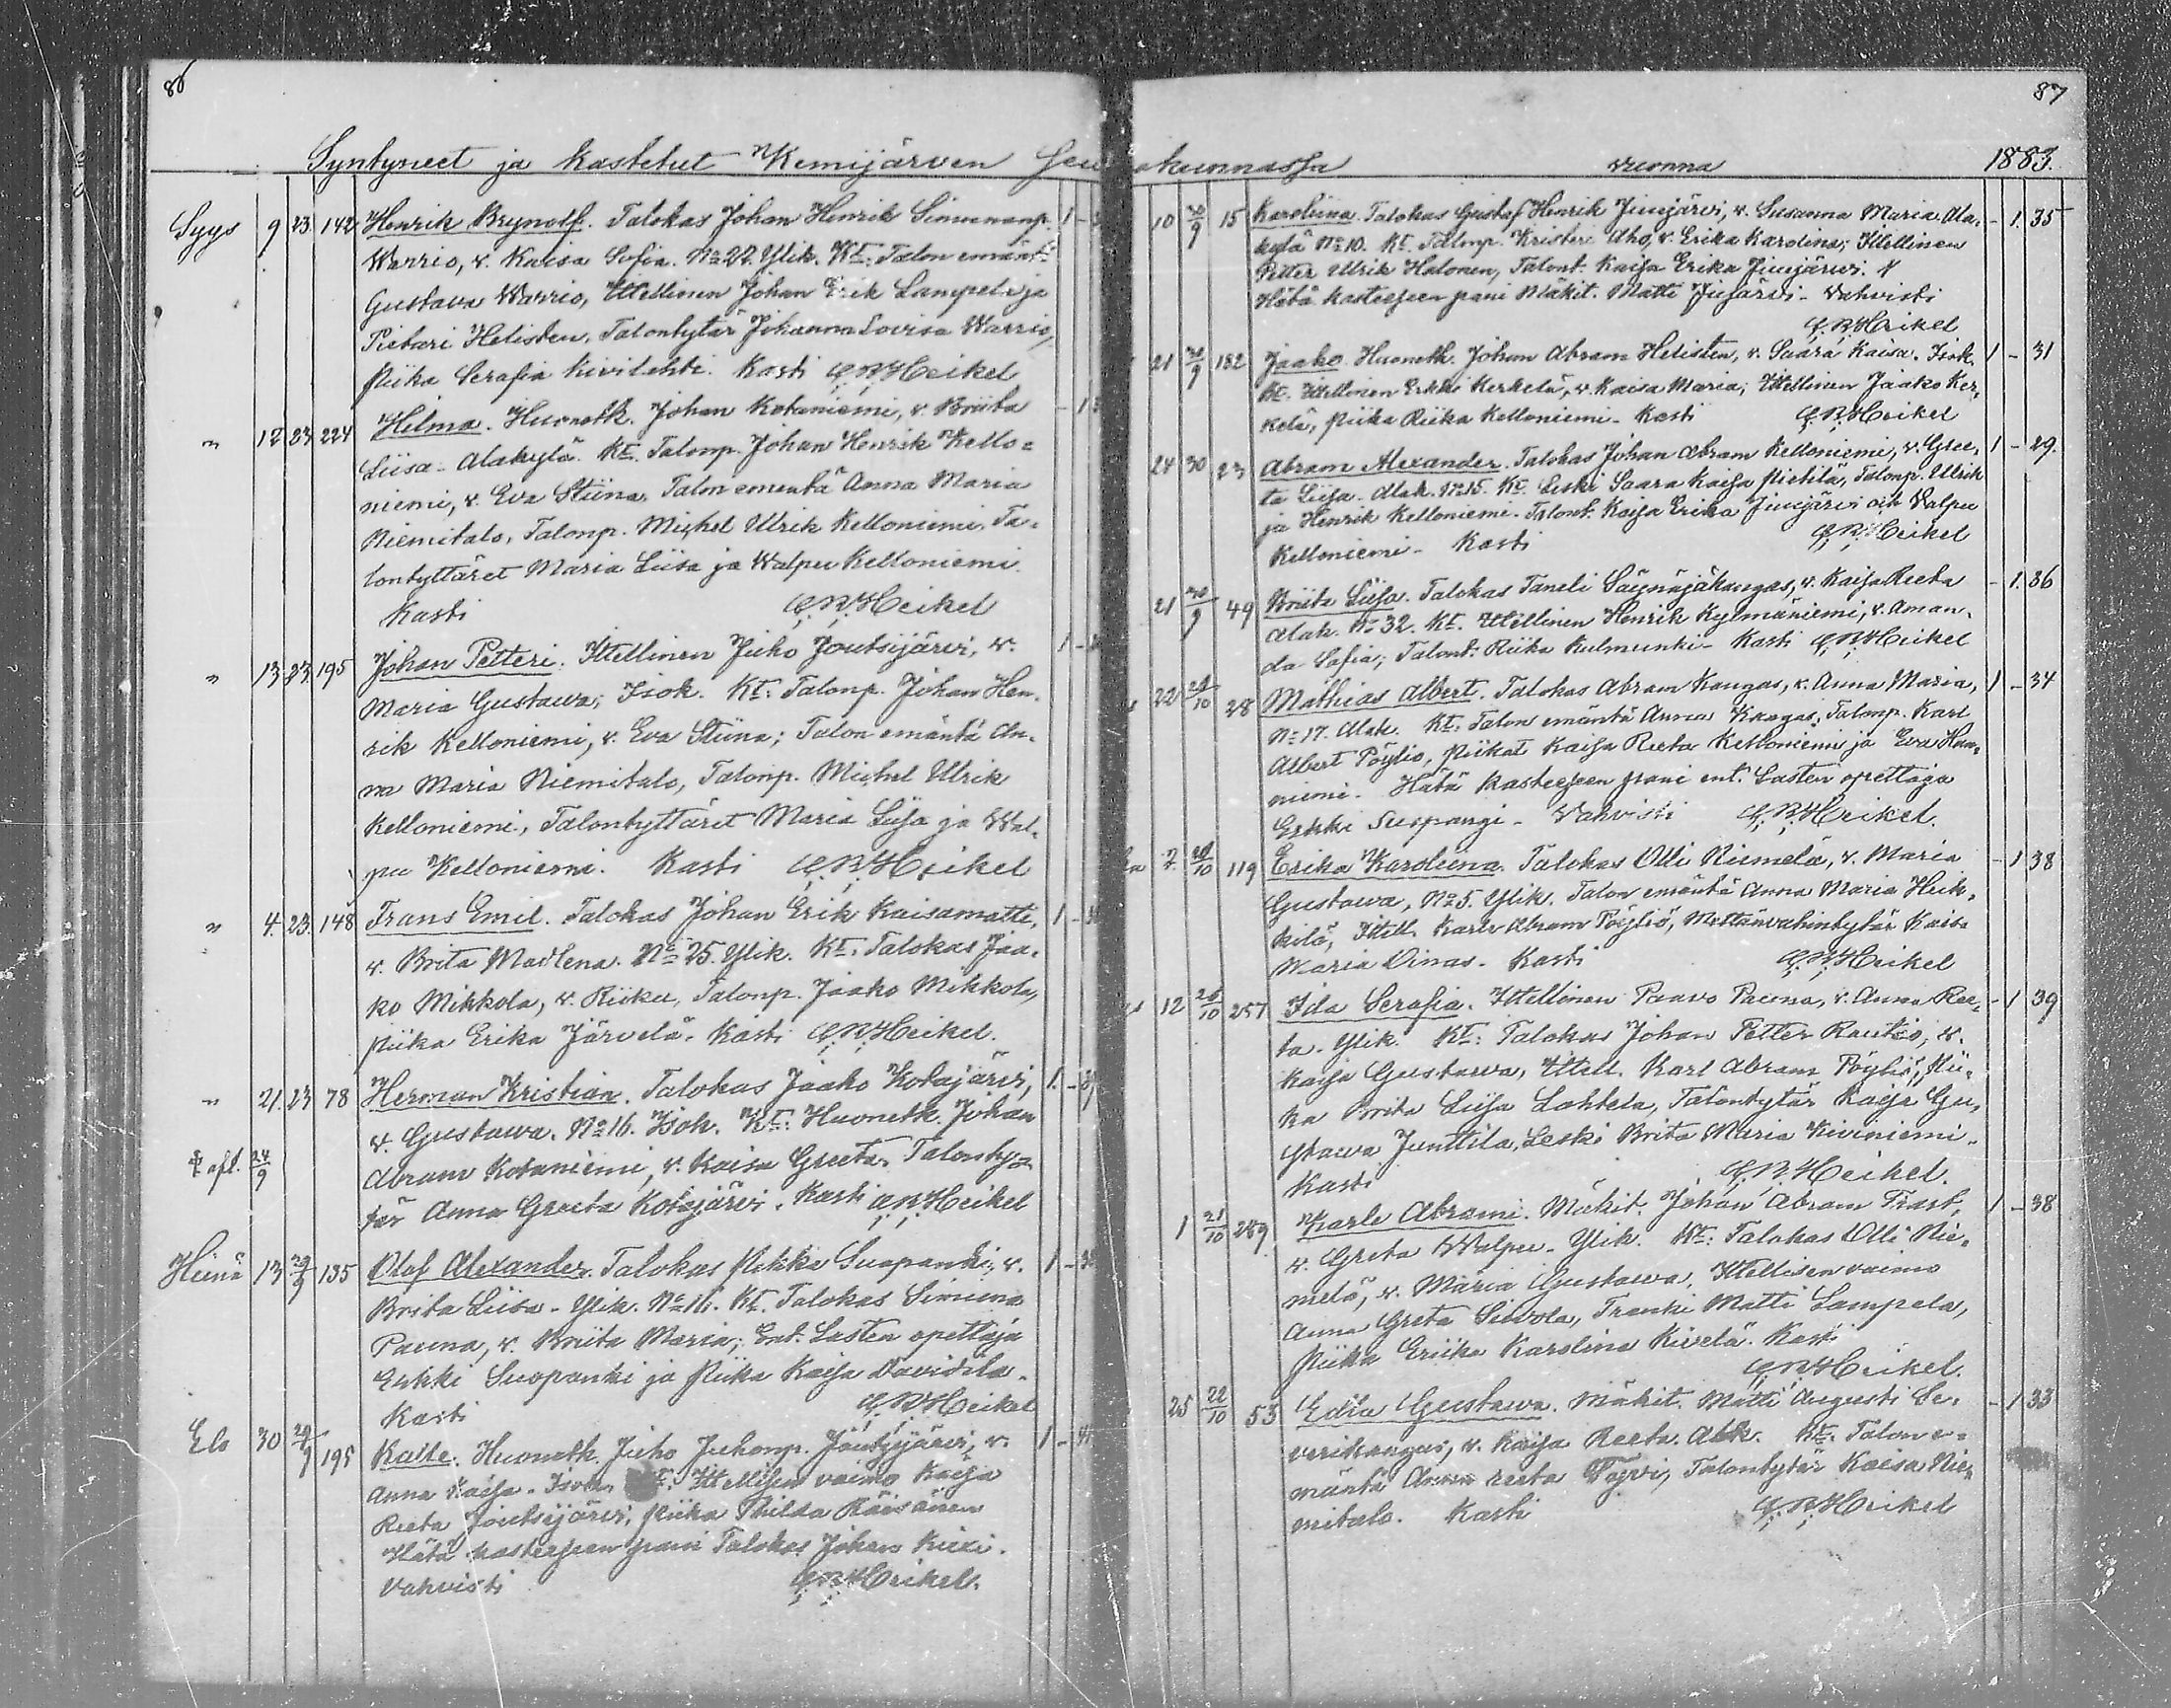 86
Syntyneet ja kastetut Kemijärven Seu
Syys 9 23 142 Henrik Brynolf. Talokas Johan Henrik Simunanp. 1 -
Warrio, v. Kaisa Sofia. No 22. Ylik. Kt: Talon emänt.
Gustava Warrio, Ittellinen Johan Erik Lampela ja
Pietari Helisten, Talontytär Johanna Lovisa Warrio,
Piika Serafia Kivilehti. Kasti C. R. Heikel
" 12 23 224 Helma. Huonetk. Johan Kotaniemi, v. Briita - 1
Liisa. Alakylä. Kt. Talonp. Johan Henrik Kello=
niemi, v. Eva Stiina, Talon emäntä Anna Maria
Niemitalo, Talonp. Michel Ulrik Kelloniemi, Ta-
lontyttäret Maria Liisa ja Walpu Kelloniemi.
Kasti C. R. Heikel
" 13 23 195 Johan Petteri. Ittellinen Juho Joutsijärvi, v. 1 -
Maria Gustawa; Isok. Kt: Talonp. Johan Hen-
rik Kelloniemi, v. Eva Stiina; Talon emäntä An-
na Maria Niemitalo, Talonp. Michel Ulrik
Kelloniemi, Talontyttäret Maria Liisa ja Wal-
pu Kelloniemi. Kasti C. R. Heikel
" 4. 23. 148 Frans Emil. Talokas Johan Erik Kaisamatti, 1 -
v. Brita Madlena. No 25. Ylik. Kt. Talokas Jaa-
ko Mikkola, v. Riika, Talonp. Jaako Mikkola,
Piika Erika Järvelä. Kasti C. R. Heikel.
" 21. 23 78 Herman Kristian. Talokas Jaako Kotajärvi, 1. -
v. Gustawa. No 16. Isok. Kt: Huonetk. Johan
† afl. 24/9 Abram Kotaniemi, v. Kaisa Greeta, Talonty=
tär Anna Greeta Kotajärvi. Kasti C. R. Heikel
Heinä 13 29/9 135 Olof Alexander. Talokas Pekka Suopanki, v. 1 -
Brita Liisa - Ylik. No 16. Kt. Talokas Simuna
Pauna, v. Briita Maria; Ent. Lasten opettaja
Erkki Suopanki ja Piika Kaisa Davidila.
Kasti C. R. Heikel
Elo 30 29/9 195 Kalle. Huonetk. Juho Juhonp. Joutsijärvi, v. 1 -
Anna Kaisa. Isok. Kt. Ittellisen vaimo Kaisa
Reeta Joutsijärvi, Piika Hilda Räisänen
Hätä kasteeseen pani Talokas Johan
Vahvisti C. R. Heikel.
87
akunnassa vuonna 1883.
10 30/9 15 Karoliina. Talokas Gustaf Henrik Jumjärvi, v. Susanna Maria Ala- - 1. 35
kylä No 10. Kt. Talonp. Kristeri Aho, v. Erika Karolina; Ittellinen
Petter Ulrik Halonen, Talont. Kaisa Erika Jumjärvi.
Hätä kasteeseen pani Mäkit. Matti Vahvisti
C. R. Heikel
21 30/9 182 Jaako. Huonetk. Johan Abram Helisten, v. Saara Kaisa. Isok. 1 - 31
Kt. Ittellinen Erkki Kerkelä, v. Kaisa Maria, Ittellinen Jaako Ker-
kelä, Piika Riika Kelloniemi. Kasti C. R. Heikel
24 30 23 Abram Alexander. Talokas Johan Abram Kelloniemi, v. Gree- 1 - 29.
ta Liisa. Alak. No 15. Kt. Leski Saara Kaisa Pietilä, Talonp. Ulrik
ja Henrik Kelloniemi. Talont. Kaisa Erika Jumjärvi och Walpu
Kelloniemi - Kasti C. R. Heikel
21 30/9 49 Briita Liisa. Talokas Taneli Säynäjäkangas, v. Kaisa Reeta - 1. 36
Alak. No 32. Kt. Ittellinen Henrik Kylmäniemi, v. Aman-
da Sofia; Talont. Riika Kulmunki - Kasti C. R. Heikel
22 28 Mathias Albert. Talokas Abram Kangas, v. Anna Maria, 1 - 34
No 17. Alak. Kt. Talon emäntä Anna Kangas, Talonp. Karl
Albert Pöyliö, Piikat Kaisa Reeta Kelloniemi ja Eva Han-
niemi. Hätä kasteeseen pani ent. Lasten opettaja
Erkki Suopangi - Vahvisti C. R. Heikel.
7 119 Erika Karoliina. Talokas Olli Niemelä, v. Maria - 1 38
Gustawa, No 5. Ylik. Talon emäntä Anna Maria Heik-
kilä, Ittell. Karle Abram Pöyliö, Mettänvahintytär Kaisa
Maria Dinas. Kasti C. R. Heikel
12 257 Iida Serafia. Ittellinen Paavo Pauna, v. Anna Ree- - 1 39
ta. Ylik. Kt: Talokas Johan Petter Rautio, v.
Kaisa Gustawa, Ittell. Karl Abram Pöyliö, Pii-
ka Brita Liisa Lahtela, Talontytär Kaisa Gu-
stawa Junttila, Leski Brita Maria Kiviniemi.
Kasti C. R. Heikel.
1 21/10 289 Karle Abrami. Mäkit. Johan Abram Trast, 1 - 38
v. Greta Walpu. Ylik. Kt: Talokas Olli Nie-
melä, v. Maria Gustawa, Ittellisen vaimo
Anna Greta Siwola, Trenki Matti Lampela,
Piika Eriika Karolina Kivelä. Kasti
C. R. Heikel.
25 22/10 53 Edla Gustawa. Mäkit. Matti Augusti Se- - 1 33
verikangas, v. Kaisa Reeta. Alak. Kt. Talon e-
mäntä Anna Reeta Talontytär Kaisa Nie-
mitalo. Kasti C. R. Heikel